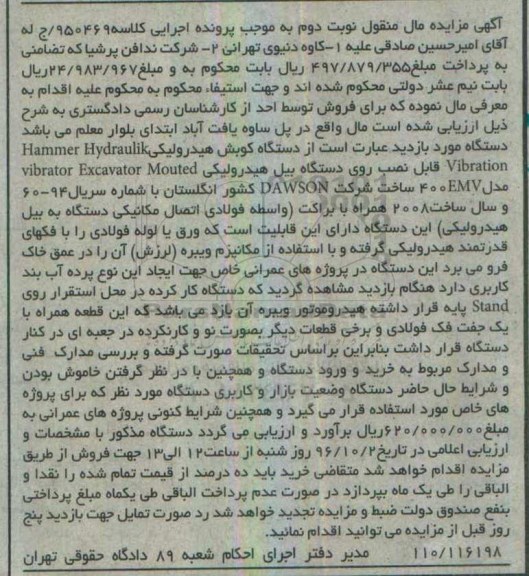 آگهی مزایده مال منقول نوبت دوم به موجب پرونده اجرایی کلاسه۹۵۰۴۶۹/ج له
آقای امیرحسین صادقی علیه ۱-کاوه دنیوی تهرانی ۲- شرکت ندافن پرشیا که تضامنی
به پرداخت مبلغ۴۹۷/۸۷۹/۳۵۵ ریال بابت محکوم به و مبلغ۲۴/۹۸۳/۹۶۷ریال
بابت نیم عشر دولتی محکوم شده اند و جهت استیفاء محکوم به محکوم علیه اقدام به
معرفی مال نموده که برای فروش توسط احد از کارشناسان رسمی دادگستری به شرح
ذیل ارزیابی شده است مال واقع در پل ساوه یافت آباد ابتدای بلوار معلم می باشد
دستگاه مورد بازدید عبارت است از دستگاه کوبش هیدرولیکیHammer Hydraulik
Vibration قابل نصب روی دستگاه بیل هیدرولیکی vibrator Excavator Mouted
مدل۴۰۰EMV ساخت شرکت DAWSON کشور انگلستان با شماره سریال۹۴-۶۰
و سال ساخت۲۰۰۸ همراه با براکت (واسطه فولادی اتصال مکانیکی دستگاه به بیل
هیدرولیکی) این دستگاه دارای این قابلیت است که ورق یا لوله فولادی را با فکهای
قدرتمند هیدرولیکی گرفته و با استفاده از مکانیزم ویبره (لرزش) آن را در عمق خاک
فرو می برد این دستگاه در پروژه های عمرانی خاص جهت ایجاد این نوع پرده آب بند
کاربری دارد هنگام بازدید مشاهده گردید که دستگاه کار کرده در محل استقرار روی
Stand پایه قرار داشته هیدروموتور ویبره آن بازد می باشد که این قطعه همراه با
یک جفت فک فولادی و برخی قطعات دیگر بصورت نو و کارنکرده در جعبه ای در کنار
دستگاه قرار داشت بنابراین براساس تحقیقات صورت گرفته و بررسی مدارک فنی
و مدارک مربوط به خرید و ورود دستگاه و همچنین با در نظر گرفتن خاموش بودن
و شرایط حال حاضر دستگاه وضعیت بازار و کاربری دستگاه مورد نظر که برای پروژه
های خاص مورد استفاده قرار می گیرد و همچنین شرایط کنونی پروژه های عمرانی به
مبلغ۶۲۰/۰۰۰/۰۰۰ریال برآورد و ارزیابی می گردد دستگاه مذکور با مشخصات و
ارزیابی اعلامی در تاریخ۹۶/۱۰/۲ روز شنبه از ساعت۱۲ الی۱۳ جهت فروش از طریق
مزایده اقدام خواهد شد متقاضی خرید باید ده درصد از قیمت تمام شده را نقدا و
الباقی را طی یک ماه بپردازد در صورت عدم پرداخت الباقی طی یکماه مبلغ پرداختی
بنفع صندوق دولت ضبط و مزایده تجدید خواهد شد رد صورت تمایل جهت بازدید پنج
روز قبل از مزایده می توانید اقدام نمائید.
۱۱۰/۱۱۶۱۹۸ مدیر دفتر اجرای احکام شعبه ۸۹ دادگاه حقوقی تهران